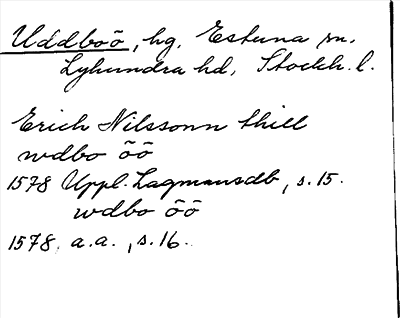 Uddboö, hg, Estuna sn.
Lyhundra hd, Stockh. l.
Erich Nilssonn thill
wdbo öö
1578 Uppl. Lagmansdb, s. 15.
wdbo öö
1578. a.a., s. 16.